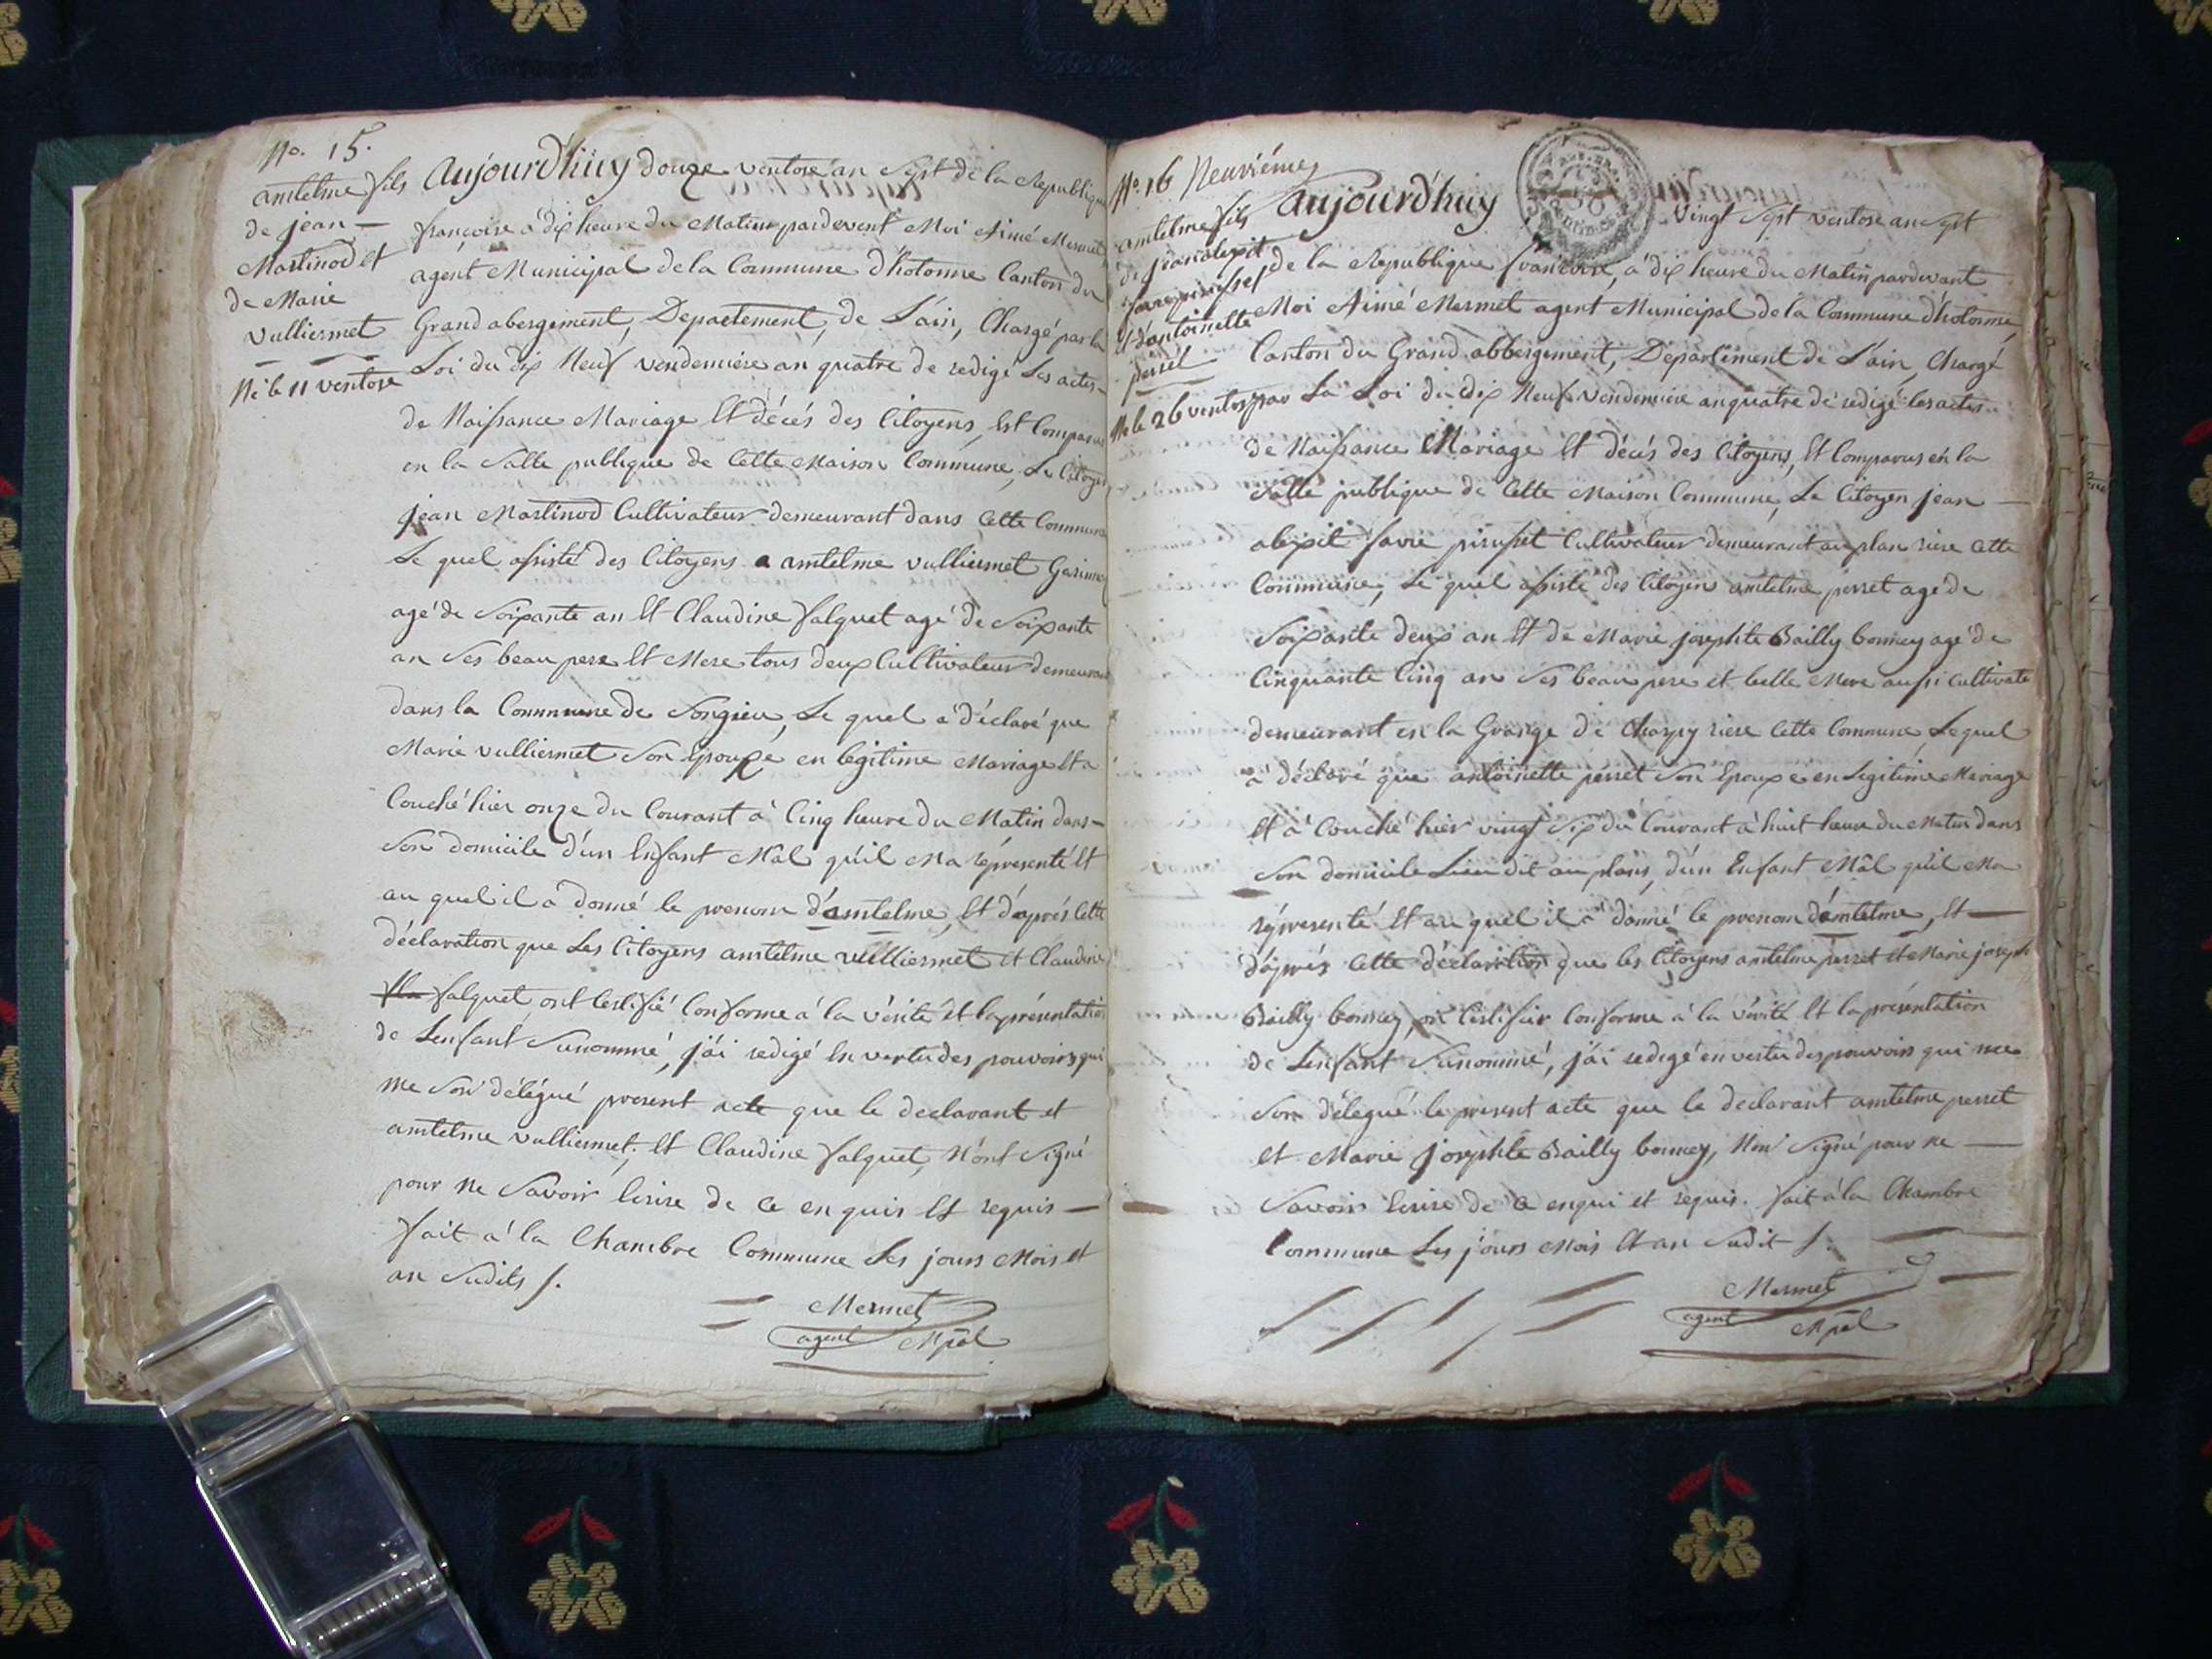 No. 15.
amtelme fils
de jean —
Martinod et
de Marie
Vulliermet
Né le 11 ventose
Aujourd'huy douze ventose an Sept de la Republique
françoise a dix heure du Matin pardevent Moi Aimé Mermet
agent Municipal de la Commune d'hotonne Canton du
Grand abergement, Departement, de L'ain, Chargé par la
Loi du dix Neuf vendemiére an quatre de redigé Les actes
de Naissance Mariage Et décés des Citoyens, Est Comparu
en la Salle publique de Cette Maison Commune, Le Citoyen
jean Martinod Cultivateur demeurant dans Cette Commune
Le quel assisté des Citoyens a amtelme vulliermet
agé de Soixante an Et Claudine falquet agé de Soixante
an Ses beau pere Et Mere tous deux Cultivateur demeurant
dans la Commune de Songieu, Le quel a déclaré que
Marie vulliermet Son Epouze en légitime Mariage Et a
Couché hier onze du Courant à Cinq heure du Matin dans —
Son domicile d'un Enfant Mal qu'il Ma répresenté Et
au quel il a donné le prenom d'amtelme, Et d'aprés Cette
déclaration que Les Citoyens amtelme vulliermet Et Claudine
fla falquet, ont Certifié Conforme à la vérité Et la présentation
de Lenfant Sunommé, j'ai redigé En vertu des pouvoirs qui
me Son délégué present acte que le declarant et
amtelme vulliermet, Et Claudine falquet, N'ont Signé
pour Ne Savoir Ecrire de Ce en quis Et requis —
fait a la Chambre Commune Les jours Mois et
an Sudits /.
Mermet
agent Mpal
No. 16 Neuviéme
amtelme fils
de jean alexit
favre
Et d'antoinette
perret
Né le 26 ventose
aujourd'huy Vingt Sept ventose an Sept
de la Republique françoise, a dix heure du Matin pardevant
Moi Aimé Mermet agent Municipal de la Commune d'hotonne,
Canton du Grand abbergement, Departement de L'ain, Chargé
par La Loi du dix Neuf Vendemiére an quatre de redigé les actes
de Naissance Mariage Et décés des Citoyens, Et Comparus en la
Salle publique de Cette Maison Commune, Le Citoyen jean —
alexit favre Cultivateur demeurant au plan riere Cette
Commune, Le quel assisté des Citoyens amtelme perret agé de
Soixante deux an Et de Marie josephte Bailly bonney agé de
Cinquante Cinq an Ses beau pere et belle Mere aussi Cultivate
demeurant en la Grange de Charpy riere Cette Commune, Lequel
a déclaré que antoinette perret Son Epouxe en Legitime Mariage
Et a Couché hier vingt Six du Courant à huit heure du Matin dans
Son domicile Lieu dit au plans, d'un Enfant Mâl qu'il Ma
répresenté Et au quel il a donné le prenom d'amtelme, Et —
d'aprés Cette déclaration que les Citoyens amtelme perret Et Marie joseph
Bailly bonney, on Conforme à la vérité Et la présentation
de Lenfant Sunommé, j'ai redigé en vertu des pouvoirs qui me
Son délegué le present acte que le declarant amtelme perret
et Marie josephte Bailly bonney, Non Signé pour ne —
Savoir Ecrire de Ce enqui et requis. fait à la Chambre
Commune Les jours Mois Et an Sudit /.
Mermet
agent Mpal